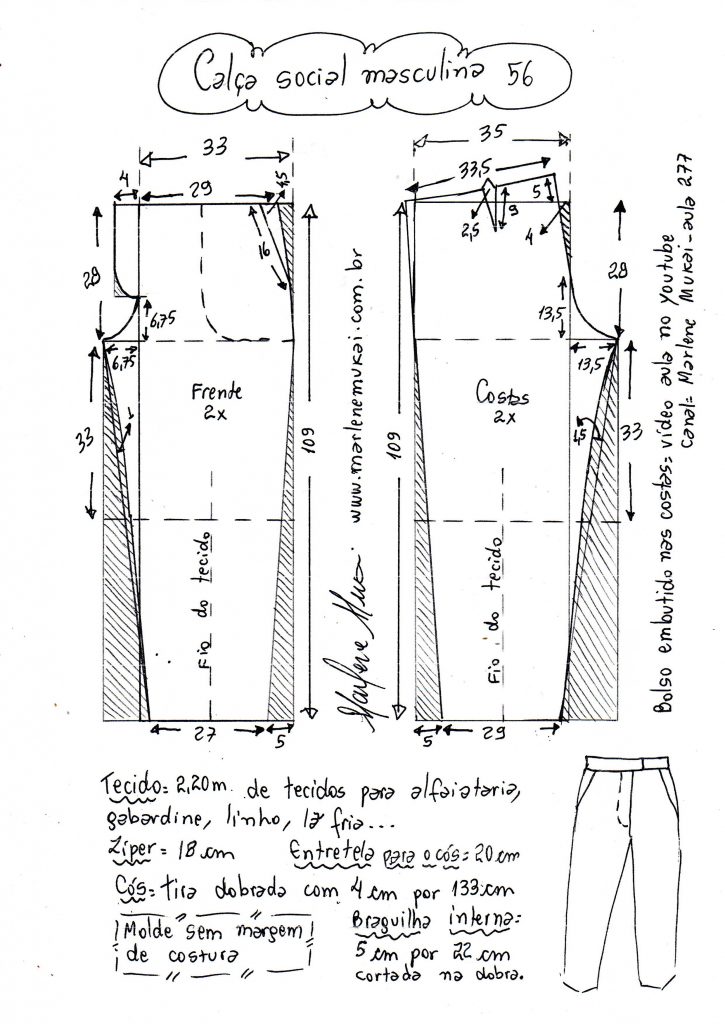 Calça social masculina 56
33
4
29
4,5
16
28
6,75
6,75
33
1
Frente
2x
109
Fio do tecido
27
5
www.marlenemukai.com.br
Marlene Mukai
35
33,5
5
9
2,5
4
28
13,5
13,5
Costas
2x
33
1,5
109
Fio do tecido
5
29
Bolso embutido nas costas= vídeo aula no youtube
canal= Marlene Mukai-aula 277
Tecido= 2,20m de tecidos para alfaiataria,
gabardine, linho, lã fria...
Zíper= 18 cm
Entretela para o cós= 20 cm
Cós= tira dobrada com 4 cm por 133 cm
Molde sem margem
de costura
Braguilha interna=
5 cm por 22 cm
cortada na dobra.